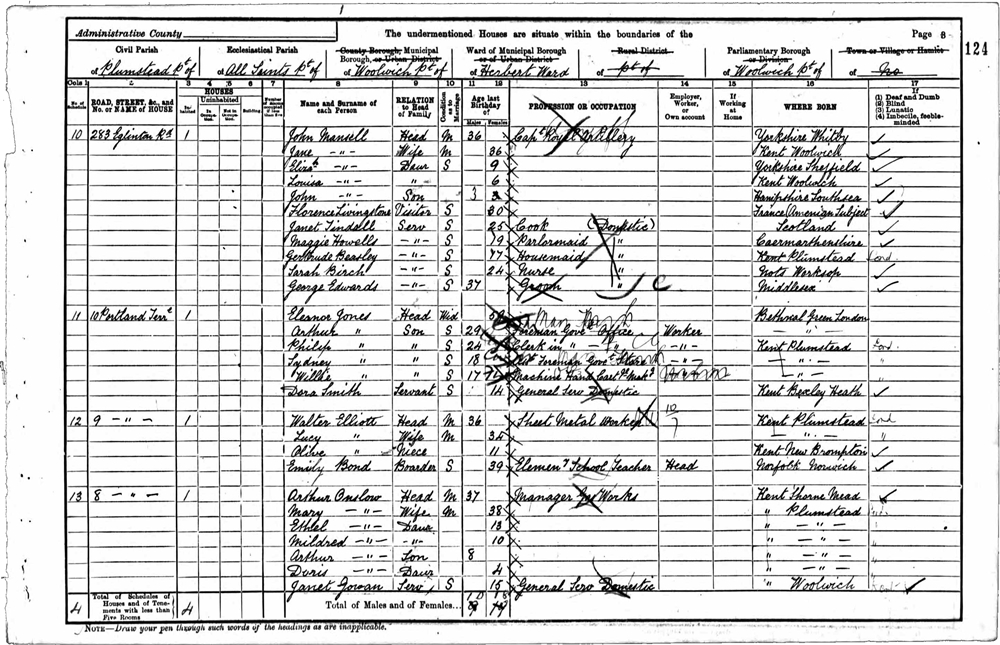 Administrative County
The undermentioned Houses are situate within the boundaries of the
Page 8
124
Civil Parish
of Plumstead Pt of
Ecclesiastical Parish
of All Saints Pt of
County Borough, Municipal Borough, or Urban District
of Woolwich Pt of
Ward of Municipal Borough or of Urban District
of Herbert Ward
Rural District
of Pt of
Parliamentary Borough or Division
of Woolwich Pt of
Town or Village or Hamlet
of No
Cols 1 2 3 4 5 6 7 8 9 10 11 12 13 14 15 16 17
No. of Schedule
ROAD, STREET, &c., and No. or NAME of HOUSE
HOUSES
Inhabited
Uninhabited
In Occupation
Not in Occupation
Building
Name and Surname of each Person
RELATION to Head of Family
Condition as to Marriage
Age last Birthday of
Males
Females
PROFESSION OR OCCUPATION
Employer, Worker, or Own account
If Working at Home
WHERE BORN
If
(1) Deaf and Dumb
(2) Blind
(3) Lunatic
(4) Imbecile, feeble-minded
10 283 Eglinton Rd 1 John Mansell Head M 36 Capt Royal Artillery Yorkshire Whitby
Jane -"- Wife M 36 Kent Woolwich
Elizth -"- Daur S 9 Yorkshire Sheffield
Louisa -"- " 6 Kent Woolwich
John -"- Son 3 Hampshire Southsea
Florence Livingstone Visitor S 30 France American Subject
Janet Tindall Serv S 25 Cook (Domestic) Scotland
Maggie Howells -"- S 19 Parlormaid " Caermarthenshire
Gertrude Beasley -"- S 17 Housemaid " Kent Plumstead
Sarah Birch -"- S 24 Nurse " Notts Worksop
George Edwards -"- S 37 Groom " Middlesex
11 10 Portland Terre 1 Eleanor Jones Head Wid Bethnal Green London
Arthur " Son S 29 Foreman Govt Office Worker -"-
Philip " " S 24 Clerk in " " -"- Kent Plumstead
Sydney " " S 18 Foreman Govt Store -"- -"-
Willie " " S 17 Machine Hand -"-
Dora Smith Servant S 14 General Serv Domestic Kent Bexley Heath
12 9 -"- 1 Walter Elliott Head M 36 Sheet Metal Worker Kent Plumstead
Lucy " Wife M 34 -"-
Olive " Niece 11 Kent New Brompton
Emily Bond Boarder S 39 Elementy School Teacher Head Norfolk Norwich
13 8 -"- 1 Arthur Onslow Head M 37 Manager Gas Works Kent Thorne Mead
Mary -"- Wife M 38 " Plumstead
Ethel -"- Daur 13 " -"-
Mildred -"- -"- 10 " -"-
Arthur -"- Son 8 " -"-
Doris -"- Daur 4 " -"-
Janet Gowan Serv S 15 General Serv Domestic " Woolwich
4 Total of Schedules of Houses and of Tenements with less than Five Rooms 4
Total of Males and of Females...
NOTE—Draw your pen through such words of the headings as are inapplicable.